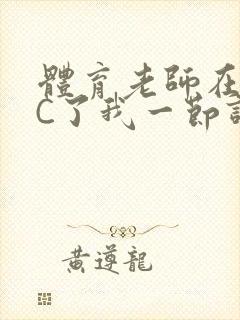 體育老師在
C了我一節
黃遵龍